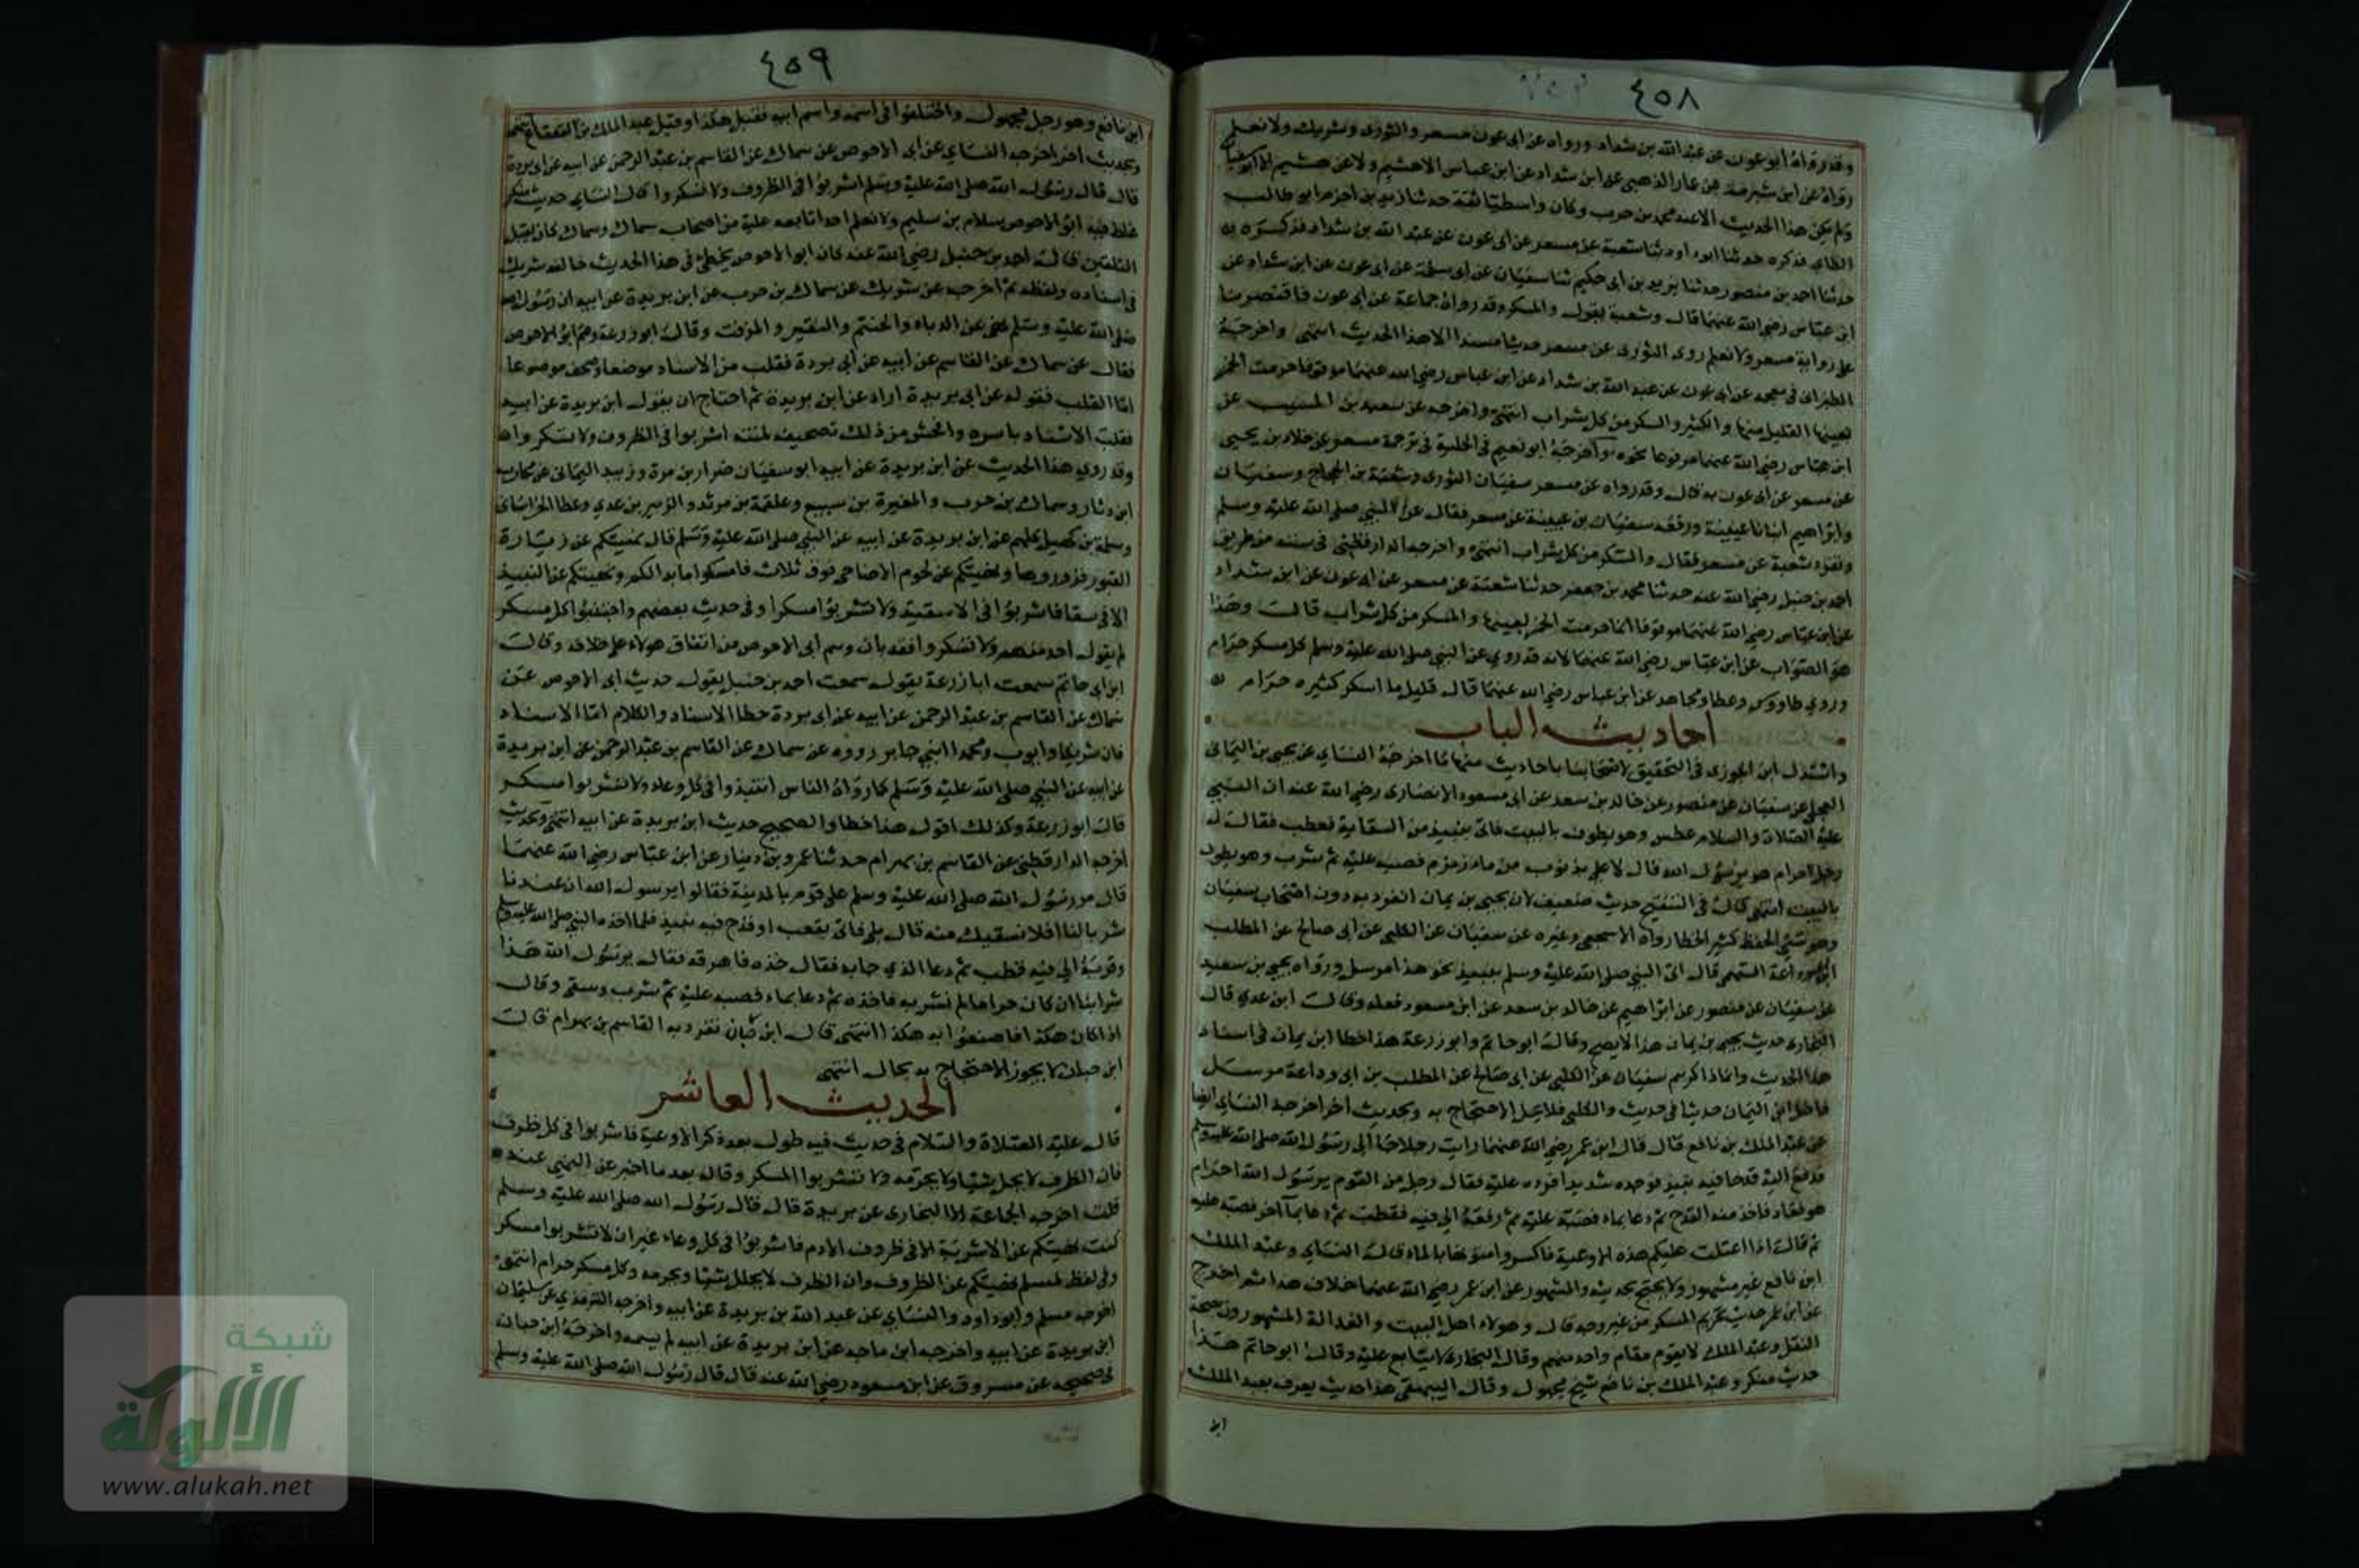 ٤٥٨
وقد رواه ابو عون عن عبد الله بن شداد ورواه عن ابى عون مسعر والثورى وشريك ولا نعلم
رواه عن ابن شبرمة عن عمار الذهبى عن ابن شداد عن ابن عباس الا هشيم ولا عن هشيم الا ابو سفيان
ولم يكن هذا الحديث الا عند محمد بن حرب وكان واسطيا ثقة حدثنا زيد بن اخزم ابو طالب
الطاى فذكره حدثنا ابو داود ثنا شعبة عن مسعر عن ابى عون عن عبد الله بن شداد فذكره
حدثنا احمد بن منصور حدثنا يزيد بن ابى حكيم ثنا سفيان عن ابى سلمة عن ابى عون عن ابن شداد عن
ابن عباس رضى الله عنهما قال وشعبة يقول والمسكر وقد رواه جماعة عن ابى عون فاقتصرنا
على رواية مسعر ولا نعلم روى الثورى عن مسعر حديثا مسندا الا هذا الحديث انتهى واخرجه
الطبرانى فى معجمه عن ابى عون عن عبد الله بن شداد عن ابن عباس رضى الله عنهما موقوفا حرمت الخمر
بعينها القليل منها والكثير والسكر من كل شراب انتهى واخرجه عن سعيد بن المسيب عن
ابن عباس رضى الله عنهما مرفوعا نحوه واخرجه ابو نعيم فى الحلية فى ترجمة مسعر عن خلاد بن يحيى
عن مسعر عن ابى عون به قال وقد رواه عن مسعر سفيان الثورى وشعبة بن الحجاج وسفيان
وابراهيم ابنا عيينة ورفعه سفيان بن عيينة عن مسعر فقال عن النبى صلى الله عليه وسلم
وتفرد شعبة عن مسعر فقال والمسكر من كل شراب انتهى واخرجه الدارقطنى فى سننه من طريق
احمد بن حنبل رضى الله عنه حدثنا محمد بن جعفر حدثنا شعبة عن مسعر عن ابى عون عن ابن شداد
عن ابن عباس رضى الله عنهما موقوفا انما حرمت الخمر بعينها والمسكر من كل شراب قال وهذا
هو الصواب عن ابن عباس رضى الله عنهما لانه قد روى عن النبى صلى الله عليه وسلم كل مسكر حرام
وروى طاووس وعطا ومجاهد عن ابن عباس رضى الله عنهما قال قليل ما اسكر كثيره حرام
احاديث الباب
واستدل ابن الجوزى فى التحقيق لاصحابنا باحاديث منها ما اخرجه النساى عن يحيى بن اليمانى
العجلى عن سفيان عن منصور عن خالد بن سعد عن ابى مسعود الانصارى رضى الله عنه ان النبى
عليه الصلاة والسلام عطس وهو يطوف بالبيت فاتى بنبيذ من السقاية فقطب فقال له
رجل احرام هو يرسول الله قال لا على بذنوب من ماء زمزم فصبه عليه ثم شرب وهو يطوف
بالبيت انتهى قال فى التنقيح حديث ضعيف لان يحيى بن يمان انفرد به دون اصحاب سفيان
وهو سئ الحفظ كثير الخطا رواه الاشجعى وغيره عن سفيان عن الكلبى عن ابى صالح عن المطلب
ابن ابى وداعة السهمى قال اتى النبى صلى الله عليه وسلم بنبيذ نحو هذا مرسل ورواه يحيى بن سعيد
عن سفيان عن منصور عن ابراهيم عن خالد بن سعد عن ابن مسعود فعله وقال ابن عدى قال
البخارى حديث يحيى بن يمان هذا لا يصح وقال ابو حاتم وابو زرعة هذا خطا ابن يمان فى اسناد
هذا الحديث وانما ذاكرهم سفيان عن الكلبى عن ابى صالح عن المطلب بن ابى وداعة مرسل
فادخل ابن اليمان حديثا فى حديث والكلبى فلا يحل الاحتجاج به وبحديث اخر اخرجه النساى ايضا
عن عبد الملك بن نافع قال قال ابن عمر رضى الله عنهما رايت رجلا جا الى رسول الله صلى الله عليه وسلم
فدفع اليه قدحا فيه نبيذ فوجده شديدا فرده عليه فقال رجل من القوم يرسول الله احرام
هو فعاد فاخذ منه القدح ثم دعا بماء فصبه عليه ثم رفعه الى فيه فقطب ثم دعا بماء اخر فصبه عليه
ثم قال اذا اغتلمت عليكم هذه الاوعية فاكسروا متونها بالماء قال النساى وعبد الملك
ابن نافع غير مشهور ولا يحتج بحديثه والمشهور عن ابن عمر رضى الله عنهما خلاف هذا ثم اخرج
عن ابن عمر حديث تحريم المسكر من غير وجه قال وهولاء اهل البيت والعدالة المشهورون بصحة
النقل وعبد الملك لا يقوم مقام واحد منهم وقال البخارى لا يتابع عليه وقال ابو حاتم هذا
حديث منكر وعبد الملك بن نافع شيخ مجهول وقال البيهقى هذا حديث يعرف بعبد الملك
ابن
٤٥٩
ابن نافع وهو رجل مجهول واختلفوا فى اسمه واسم ابيه فقيل هكذا وقيل عبد الملك بن القعقاع انتهى
وبحديث اخر اخرجه النساى عن ابى الاحوص عن سماك عن القاسم بن عبد الرحمن عن ابيه عن ابى بردة
قال قال رسول الله صلى الله عليه وسلم اشربوا فى الظروف ولا تسكروا قال النساى حديث منكر
غلط فيه ابو الاحوص سلام بن سليم ولا نعلم احدا تابعه عليه من اصحاب سماك وسماك كان يقبل
التلقين قال احمد بن حنبل رضى الله عنه كان ابو الاحوص يخطئ فى هذا الحديث خالفه شريك
فى اسناده ولفظه ثم اخرجه عن شريك عن سماك بن حرب عن ابن بريدة عن ابيه ان رسول الله
صلى الله عليه وسلم نهى عن الدباء والحنتم والنقير والمزفت وقال ابو زرعة وهم ابو الاحوص
فقال عن سماك عن القاسم عن ابيه عن ابى بردة فقلب من الاسناد موضعا وصحف موضعا
اما القلب فقوله عن ابى بريدة اراد عن ابن بريدة ثم احتاج ان يقول ابن بريدة عن ابيه
فقلب الاسناد باسره وافحش من ذلك تصحيفه لمتنه اشربوا فى الظروف ولا تسكروا
وقد روى هذا الحديث عن ابن بريدة عن ابيه ابو سفيان ضرار بن مرة وزبيد اليمانى عن محارب
ابن دثار وسماك بن حرب والمغيرة بن سبيع وعلقمة بن مرثد والزبير بن عدى وعطا الخراسانى
وسلمة بن كهيل كلهم عن ابن بريدة عن ابيه عن النبى صلى الله عليه وسلم قال نهيتكم عن زيارة
القبور فزوروها ونهيتكم عن لحوم الاضاحى فوق ثلاث فامسكوا ما بدا لكم ونهيتكم عن النبيذ
الا فى سقا فاشربوا فى الاسقية ولا تشربوا مسكرا وفى حديث بعضهم واجتنبوا كل مسكر
لم يقول احد منهم ولا تسكروا فقد بان وهم ابى الاحوص من اتفاق هولاء على خلافه وقال
ابن ابى حاتم سمعت ابا زرعة يقول سمعت احمد بن حنبل يقول حديث ابى الاحوص عن
سماك عن القاسم بن عبد الرحمن عن ابيه عن ابى بردة خطا الاسناد والكلام اما الاسناد
فان شريكا وايوب ومحمدا ابنى جابر رووه عن سماك عن القاسم بن عبد الرحمن عن ابن بريدة
عن ابيه عن النبى صلى الله عليه وسلم كما رواه الناس انتبذوا فى كل وعاء ولا تشربوا مسكر
قال ابو زرعة وكذلك اقول هذا خطا والصحيح حديث ابن بريدة عن ابيه انتهى وبحديث
اخرجه الدارقطنى عن القاسم بن بهرام حدثنا عمرو بن دينار عن ابن عباس رضى الله عنهما
قال مر رسول الله صلى الله عليه وسلم على قوم بالمدينة فقالوا يرسول الله ان عندنا
شرابا لنا افلا نسقيك منه قال بلى فاتى بقعب او قدح فيه نبيذ فلما اخذه النبى صلى الله عليه وسلم
وقربه الى فيه قطب ثم دعا الذى جا به فقال خذه فاهرقه فقال يرسول الله هذا
شرابنا ان كان حراما لم نشربه فاخذه ثم دعا بماء فصبه عليه ثم شرب وسقى وقال
اذا كان هكذا فاصنعوا به هكذا انتهى قال ابن حبان تفرد به القاسم بن بهرام قال
ابن حبان لا يجوز الاحتجاج به بحال انتهى
الحديث العاشر
قال عليه الصلاة والسلام فى حديث فيه طول بعد ذكر الاوعية فاشربوا فى كل ظرف
فان الظرف لا يحل شيئا ولا يحرمه ولا تشربوا المسكر وقال بعد ما اخبر عن النهى عنه
قلت اخرجه الجماعة الا البخارى عن بريدة قال قال رسول الله صلى الله عليه وسلم
كنت نهيتكم عن الاشربة الا فى ظروف الادم فاشربوا فى كل وعاء غير ان لا تشربوا مسكر
وفى لفظ لمسلم نهيتكم عن الظروف وان الظرف لا يحلل شيئا ويحرمه وكل مسكر حرام انتهى
اخرجه مسلم وابو داود والنساى عن عبد الله بن بريدة عن ابيه واخرجه الترمذى عن سليمان
ابن بريدة عن ابيه واخرجه ابن ماجه عن ابن بريدة عن ابيه لم يسمه واخرجه ابن حبان
فى صحيحه عن مسروق عن ابن مسعود رضى الله عنه قال قال رسول الله صلى الله عليه وسلم
شبكة
الألوكة
www.alukah.net